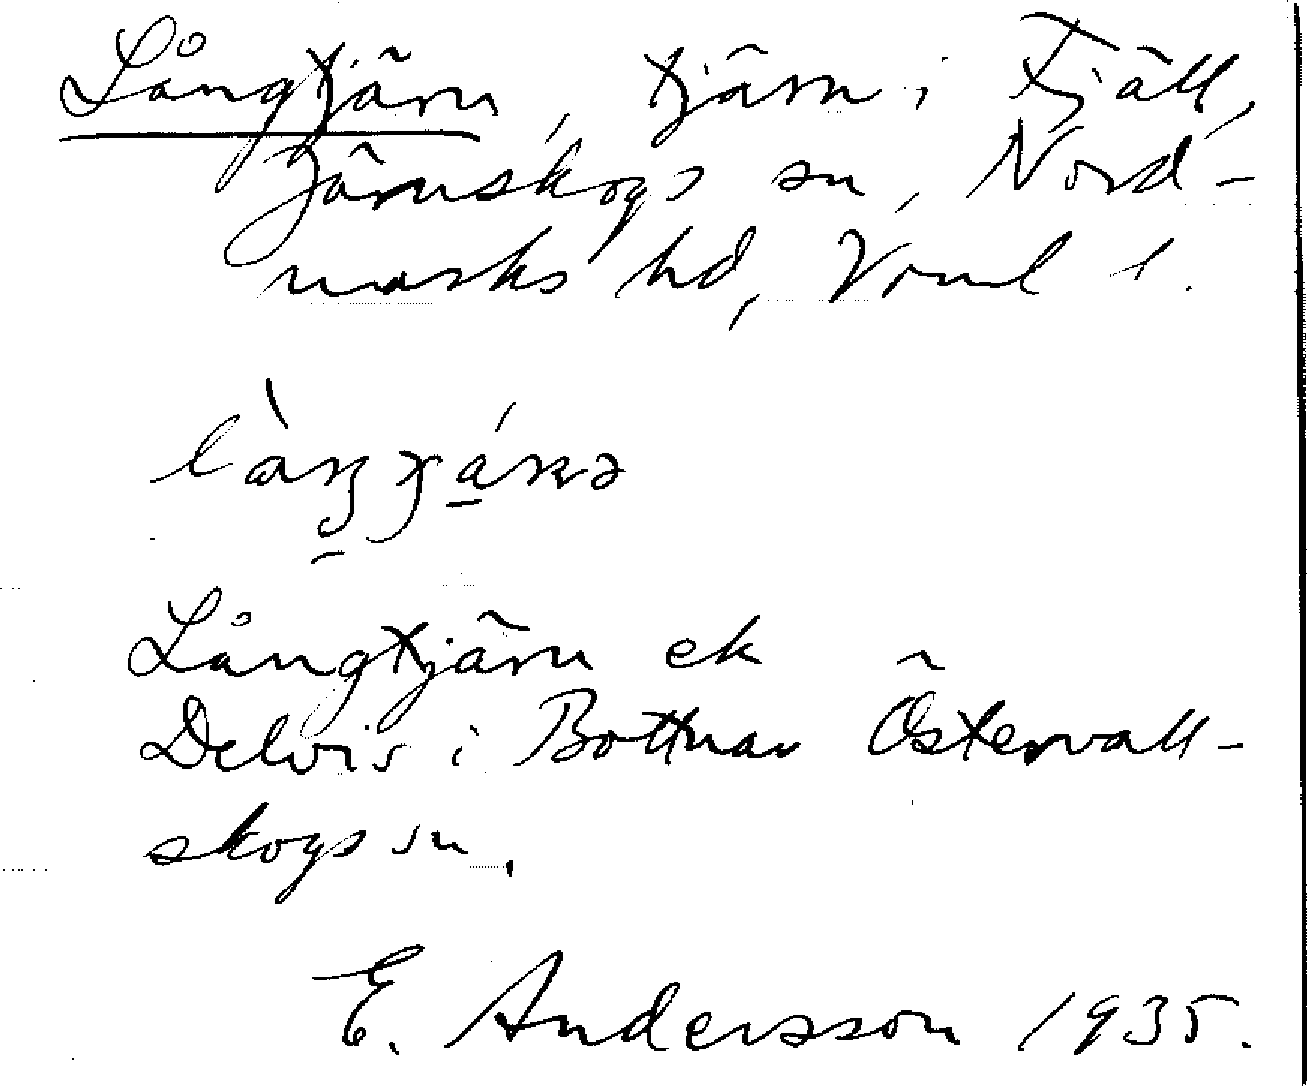 Långtjärn, tjärn i Fjäll,
Järnskogs sn, Nord-
marks hd, Vrml l.
Långtjärn ek
Delvis i Bottnan Östervall-
skogs sn.
E. Andersson 1935.